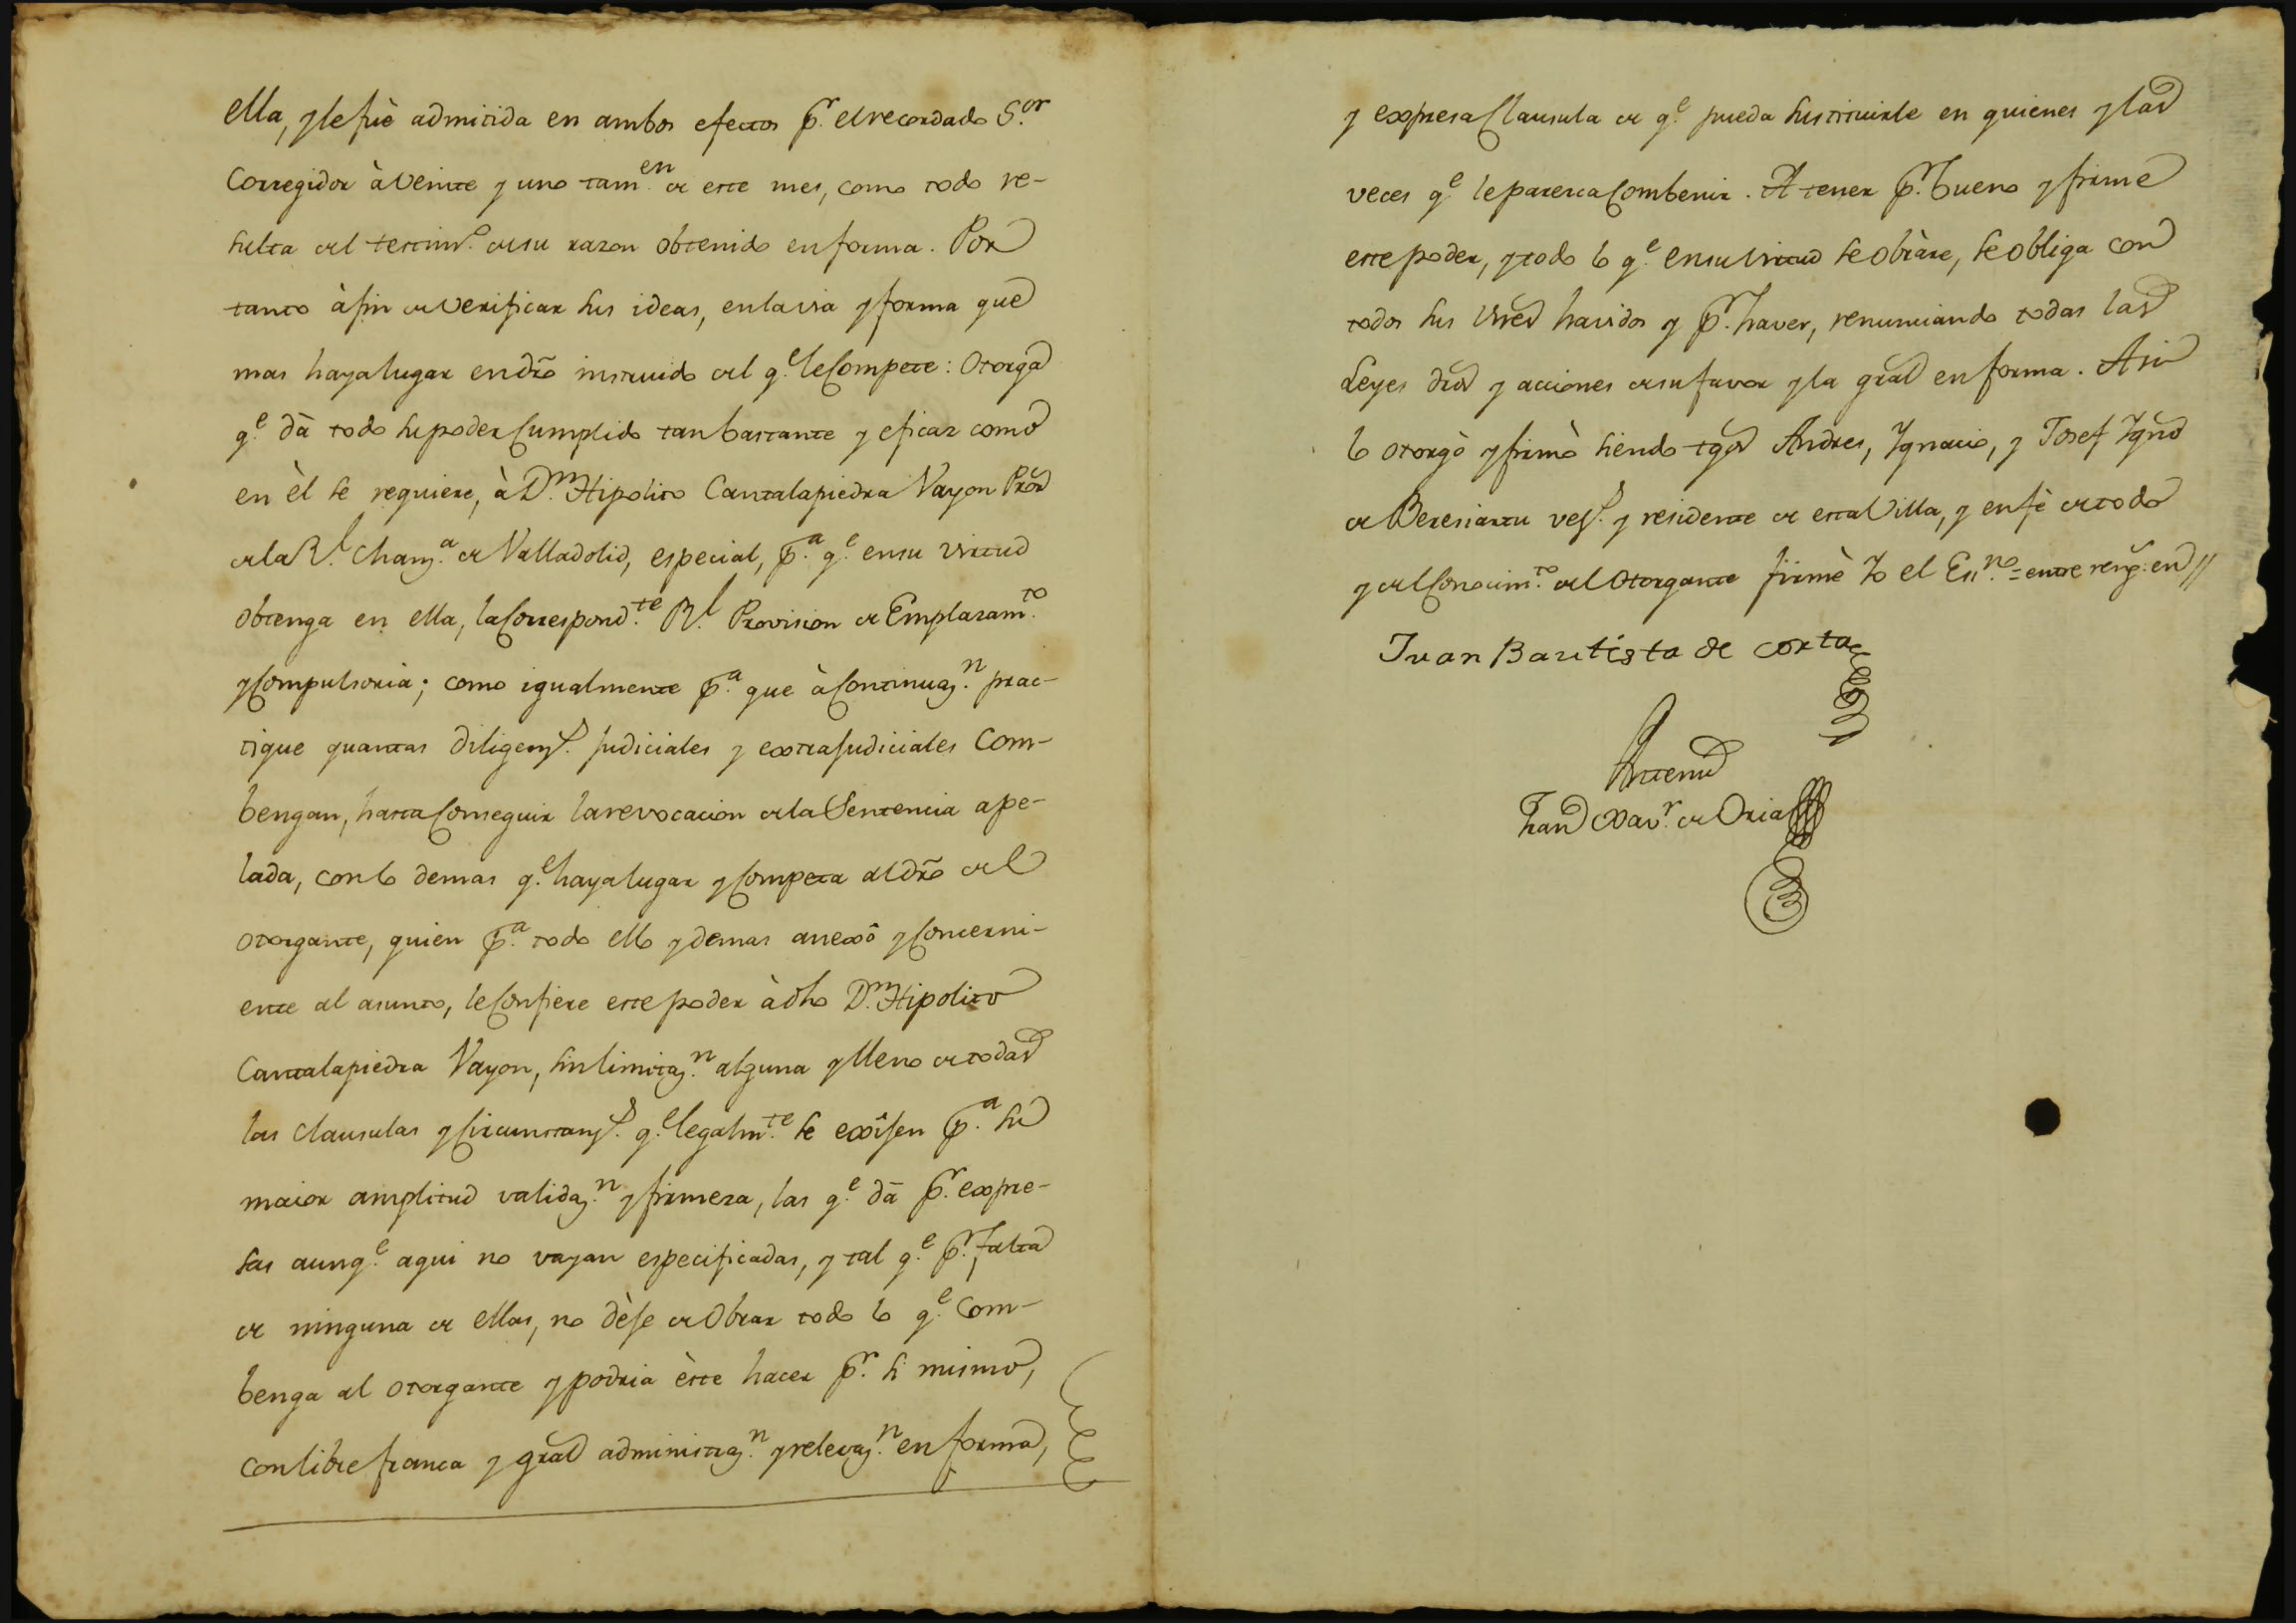 ella, y le fuè admitida en ambos efectos p.r el recordado S.or
Corregidor à veinte y uno tam.en de este mes, como todo re-
sulta del testim.o de su razon obtenido en forma. Por
tanto à fin de verificar sus ideas, en la via y forma que
mas haya lugar en dr̃o instruido del q.e le Compete: Otorga
q.e dà todo su poder Cumplido tan bastante y eficaz como
en èl se requiere, à D.n Hipolito Cantalapiedra Vayon Pror
de la R.l Chanz.a de Valladolid, especial, p.a q.e en su virtud
obtenga en ella, la Correspond.te R.l Provision de Emplazam.to
y Compulsoria; como igualmente p.a que à Continuaz.n prac-
tique quantas diligenz.s judiciales y extrajudiciales Com-
bengan, hasta Conseguir la revocacion de la Sentencia ape-
lada, con lo demas q.e haya lugar y Competa al dr̃o del
otorgante, quien p.a todo ello y demas anexô y Concerni-
ente al asunto, le Confiere este poder à dho D.n Hipolito
Cantalapiedra Vayon, sin limitaz.n alguna y lleno de todas
las clausulas y Circunstanz.s q.e legalm.te se exîjen p.a su
maior amplitud validaz.n y firmeza, las q.e dà p.r expre-
sas aunq.e aqui no vayan especificadas, y tal q.e p.r falta
de ninguna de ellas, no dèje de Obrar todo lo q.e Com-
benga al otorgante y podria èste hacer p.r si mismo,
con libre franca y gral administraz.n y relevaz.n en forma,
y expresa Clausula de q.e pueda sustituirle en quienes y las
veces q.e le parezca Combenir. A tener p.r bueno y firme
este poder, y todo lo q.e en su virtud se obràre, se obliga con
todos sus vnes havidos y p.r haver, renunciando todas las
Leyes dros y acciones de su favor y la gral en forma. Asi
lo otorgò y firmò siendo tgos Andres, Ygnacio, y Josef Ygno
de Beresiartu vez.s y residente de esta Villa, y en fè de todo
y del Conocim.to del Otorgante firmè Yo el Es.no = entre reng.s: en //
Juan Bautista de Corta
Antemi
Fran Xav.r de Oria